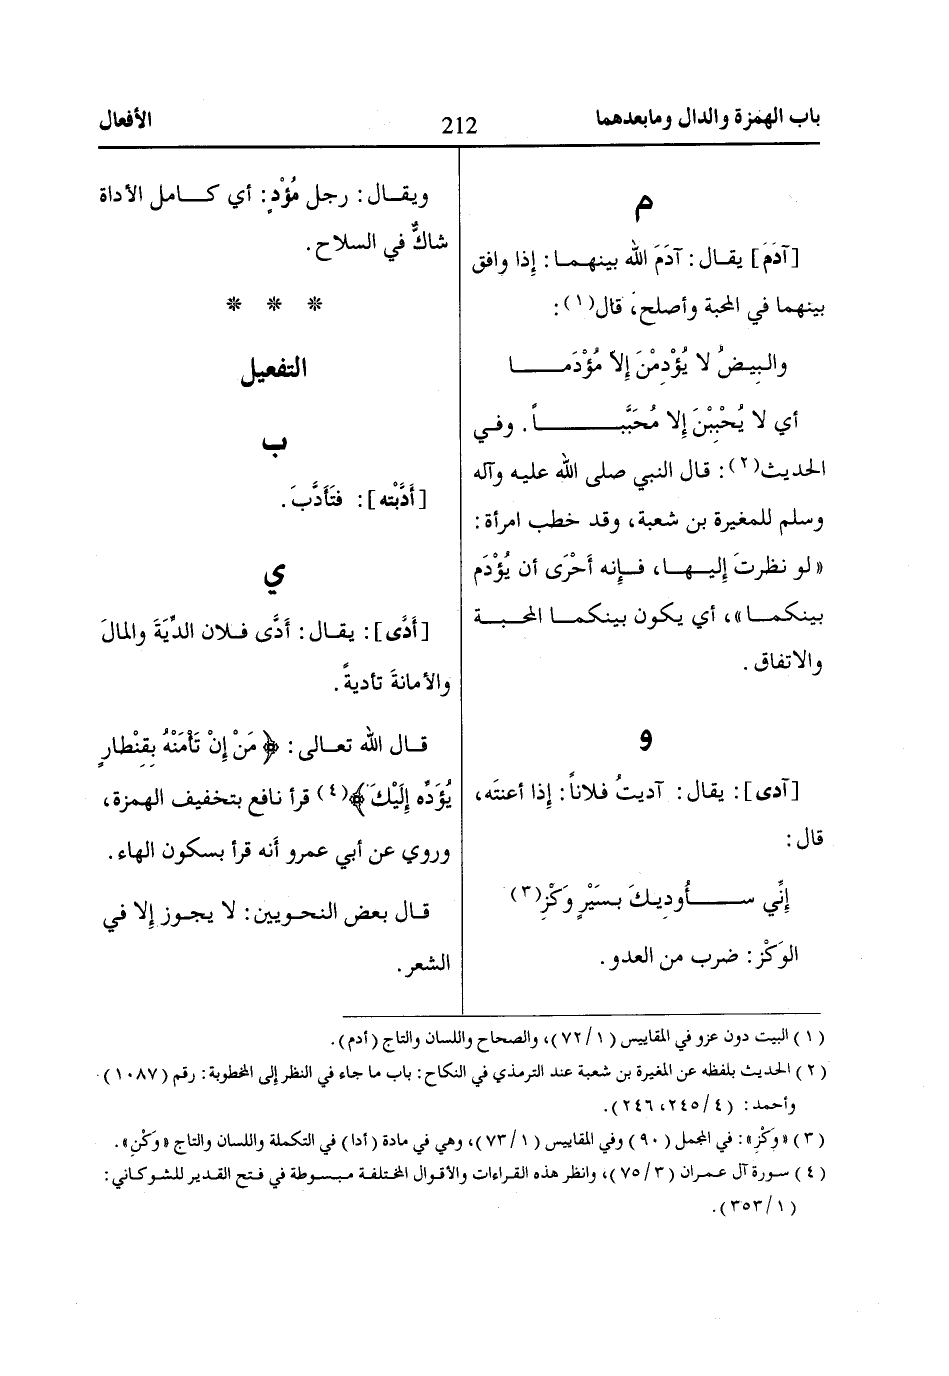 باب الهمزة والدال ومابعدهما
212
الأفعال
م
[آدَمَ] يقال: آدَمَ الله بينهما: إذا وافق
بينهما في المحبة وأصلح، قال(١):
والبِيضُ لا يُؤْدِمْنَ إِلاّ مُؤْدَمــا
أي لا يُحْبِبْنَ إِلا مُحَبَّبــاً. وفي
الحديث(٢): قال النبي صلى الله عليه وآله
وسلم للمغيرة بن شعبة، وقد خطب امرأة:
«لو نظرتَ إِليها، فإِنه أَحْرَى أن يُؤْدَم
بينكما»، أي يكون بينكما المحبة
والاتفاق.
و
[آدى]: يقال: آديتُ فلاناً: إِذا أعنتَه،
قال:
إِنِّي ســأُوديكَ بسَيْرٍ وَكْزِ(٣)
الوَكْز: ضرب من العدو.
ويقال: رجل مُؤْدٍ: أي كامل الأداة
شاكٌّ في السلاح.
* * *
التفعيل
ب
[أَدَّبْته]: فتَأَدَّبَ.
ي
[أَدَّى]: يقال: أَدَّى فلان الدِّيَةَ والمالَ
والأمانةَ تأديةً.
قال الله تعالى: ﴿مَنْ إِنْ تَأْمَنْهُ بِقِنْطارٍ
يُؤَدِّه إِلَيْكَ﴾(٤) قرأ نافع بتخفيف الهمزة،
وروي عن أبي عمرو أنه قرأ بسكون الهاء.
قال بعض النحويين: لا يجوز إِلا في
الشعر.
(١) البيت دون عزو في المقاييس (٧٢/١)، والصحاح واللسان والتاج (أدم).
(٢) الحديث بلفظه عن المغيرة بن شعبة عند الترمذي في النكاح: باب ما جاء في النظر إلى المخطوبة: رقم (١٠٨٧)
وأحمد: (٢٤٥/٤، ٢٤٦).
(٣) «وَكْزِ»: في المجمل (٩٠) وفي المقاييس (٧٣/١)، وهي في مادة (أدا) في التكملة واللسان والتاج «وَكْنِ».
(٤) سورة آل عمران (٧٥/٣)، وانظر هذه القراءات والأقوال المختلفة مبسوطة في فتح القدير للشوكاني:
(٣٥٣/١).